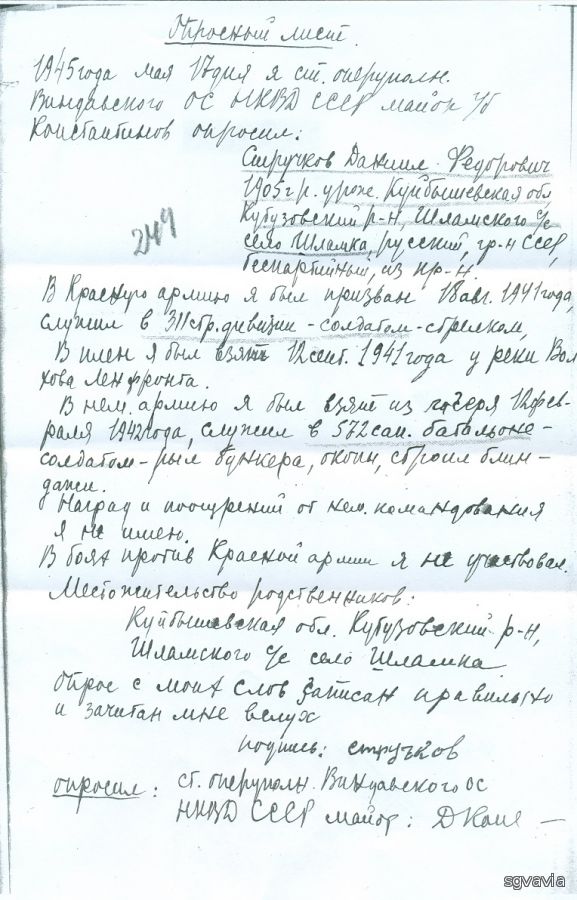 Опросный лист.
1945 года мая 17 дня я ст. оперуполн.
Виндавского ОС НКВД СССР майор г/б
Константинов опросил:
Стручков Даниил Федорович
1905 г.р. урож. Куйбышевская обл,
Кутузовский р-н, Шламского с/с
село Шламка, русский, гр-н СССР,
беспартийный, из кр-н.
249
В Красную армию я был призван 18 авг. 1941 года,
служил в 311 стр. дивизии - солдатом - стрелком,
В плен я был взят 12 сент. 1941 года у реки Вол
хова Ленфронта.
В нем. армию я был взят из лагеря 12 фев-
раля 1942 года, служил в 572 сап. батальоне -
солдатом - рыл бункера, окопы, строил блин-
дажи.
Наград и поощрений от нем. командования
я не имею.
В боях против Красной армии я не участвовал.
Местожительство родственников:
Куйбышевская обл. Кутузовский р-н,
Шламского с/с село Шламка
Опрос с моих слов записан правильно
и зачитан мне вслух
подпись: стручков
опросил: ст. оперуполн. Виндавского ОС
НКВД СССР майор:
sgvavia